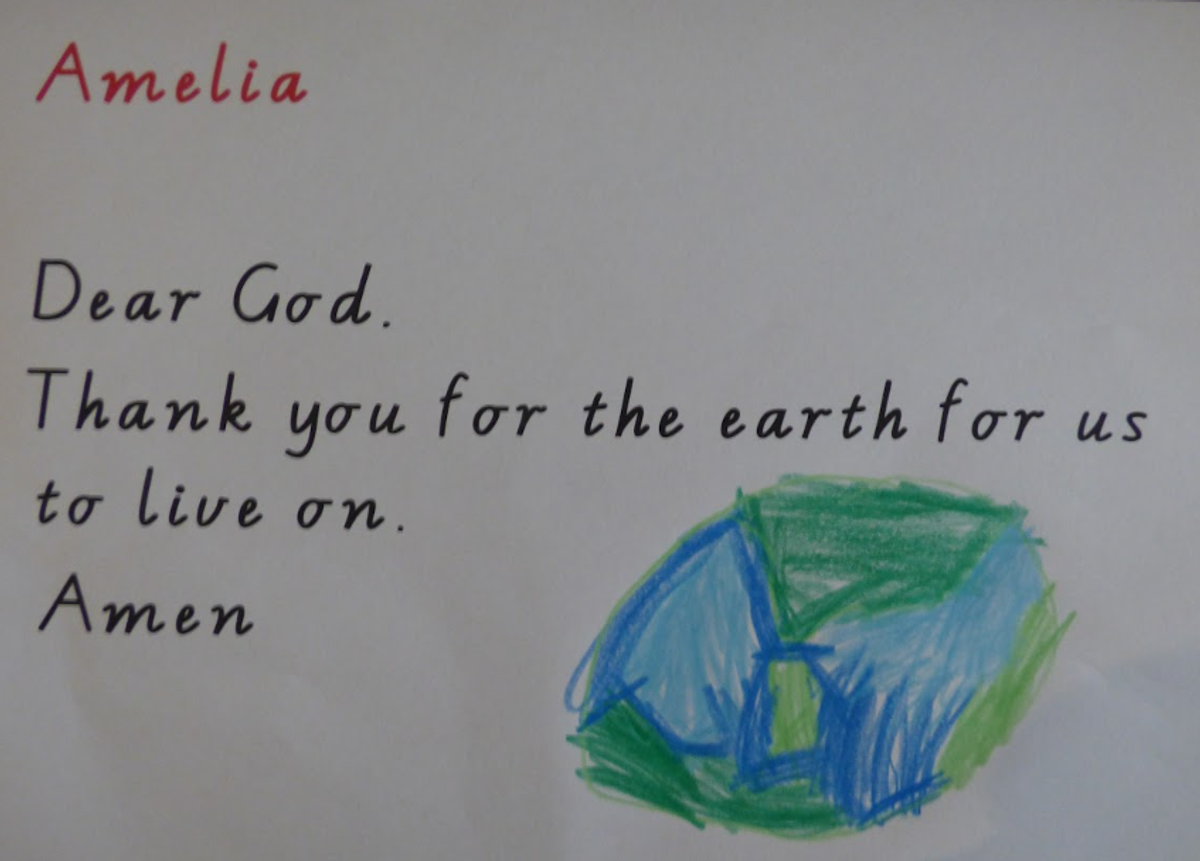 Amelia
Dear God.
Thank you for the earth for us
to live on.
Amen